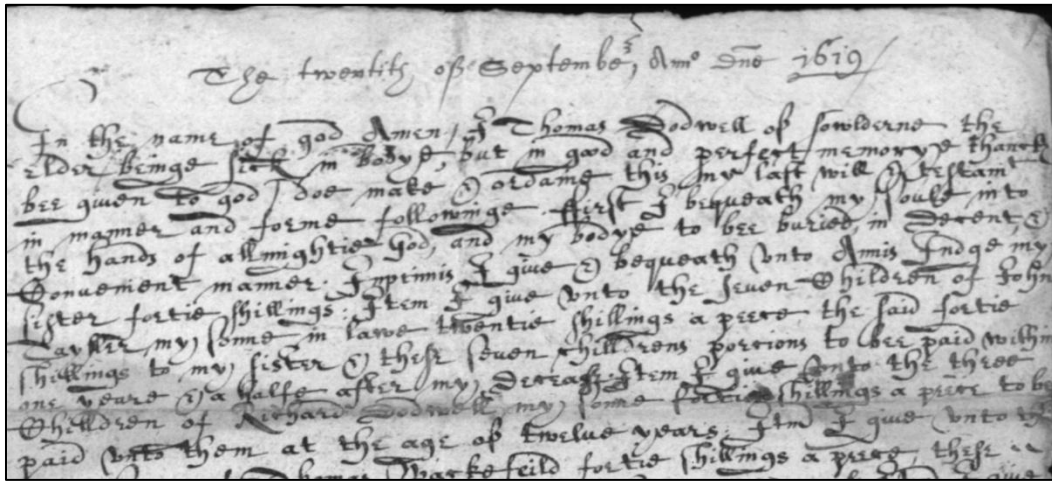 The twentith off September, Ano dne 1619
In the name of god Amen, I Thomas Dodwell of sowlderne the
elder beinge sick in bodye, but in good and perfect memorye thanck
bee given to god, doe make & ordaine this my last will & testamt
in manner and forme followinge. ffirst I bequeath my soule into
the hands of allmightie God, and my bodye to bee buried, in decent, &
Convenient manner. Inprimis I give & bequeath unto Amis Judge my
sister fortie shillings. Item I give unto the seven Children of John
Tayller my sonne in lawe twentie shillings a peece the said fortie
shillings to my sister & these seven Childrens portions to bee paid within
one yeare & a halfe after my decease. Item I give unto the three
Children of Richard Dodwell my sonne fortie shillings a peece to be
paid unto them at the age of twelve years. Itm I give unto
Thomas Wackefeild fortie shillings a peece, these